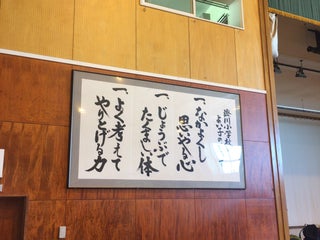 掛川小学校
よい子の
一、なかよくし
思いやる心
一、じょうぶで
たくましい体
一、よく考えて
やりとげる力